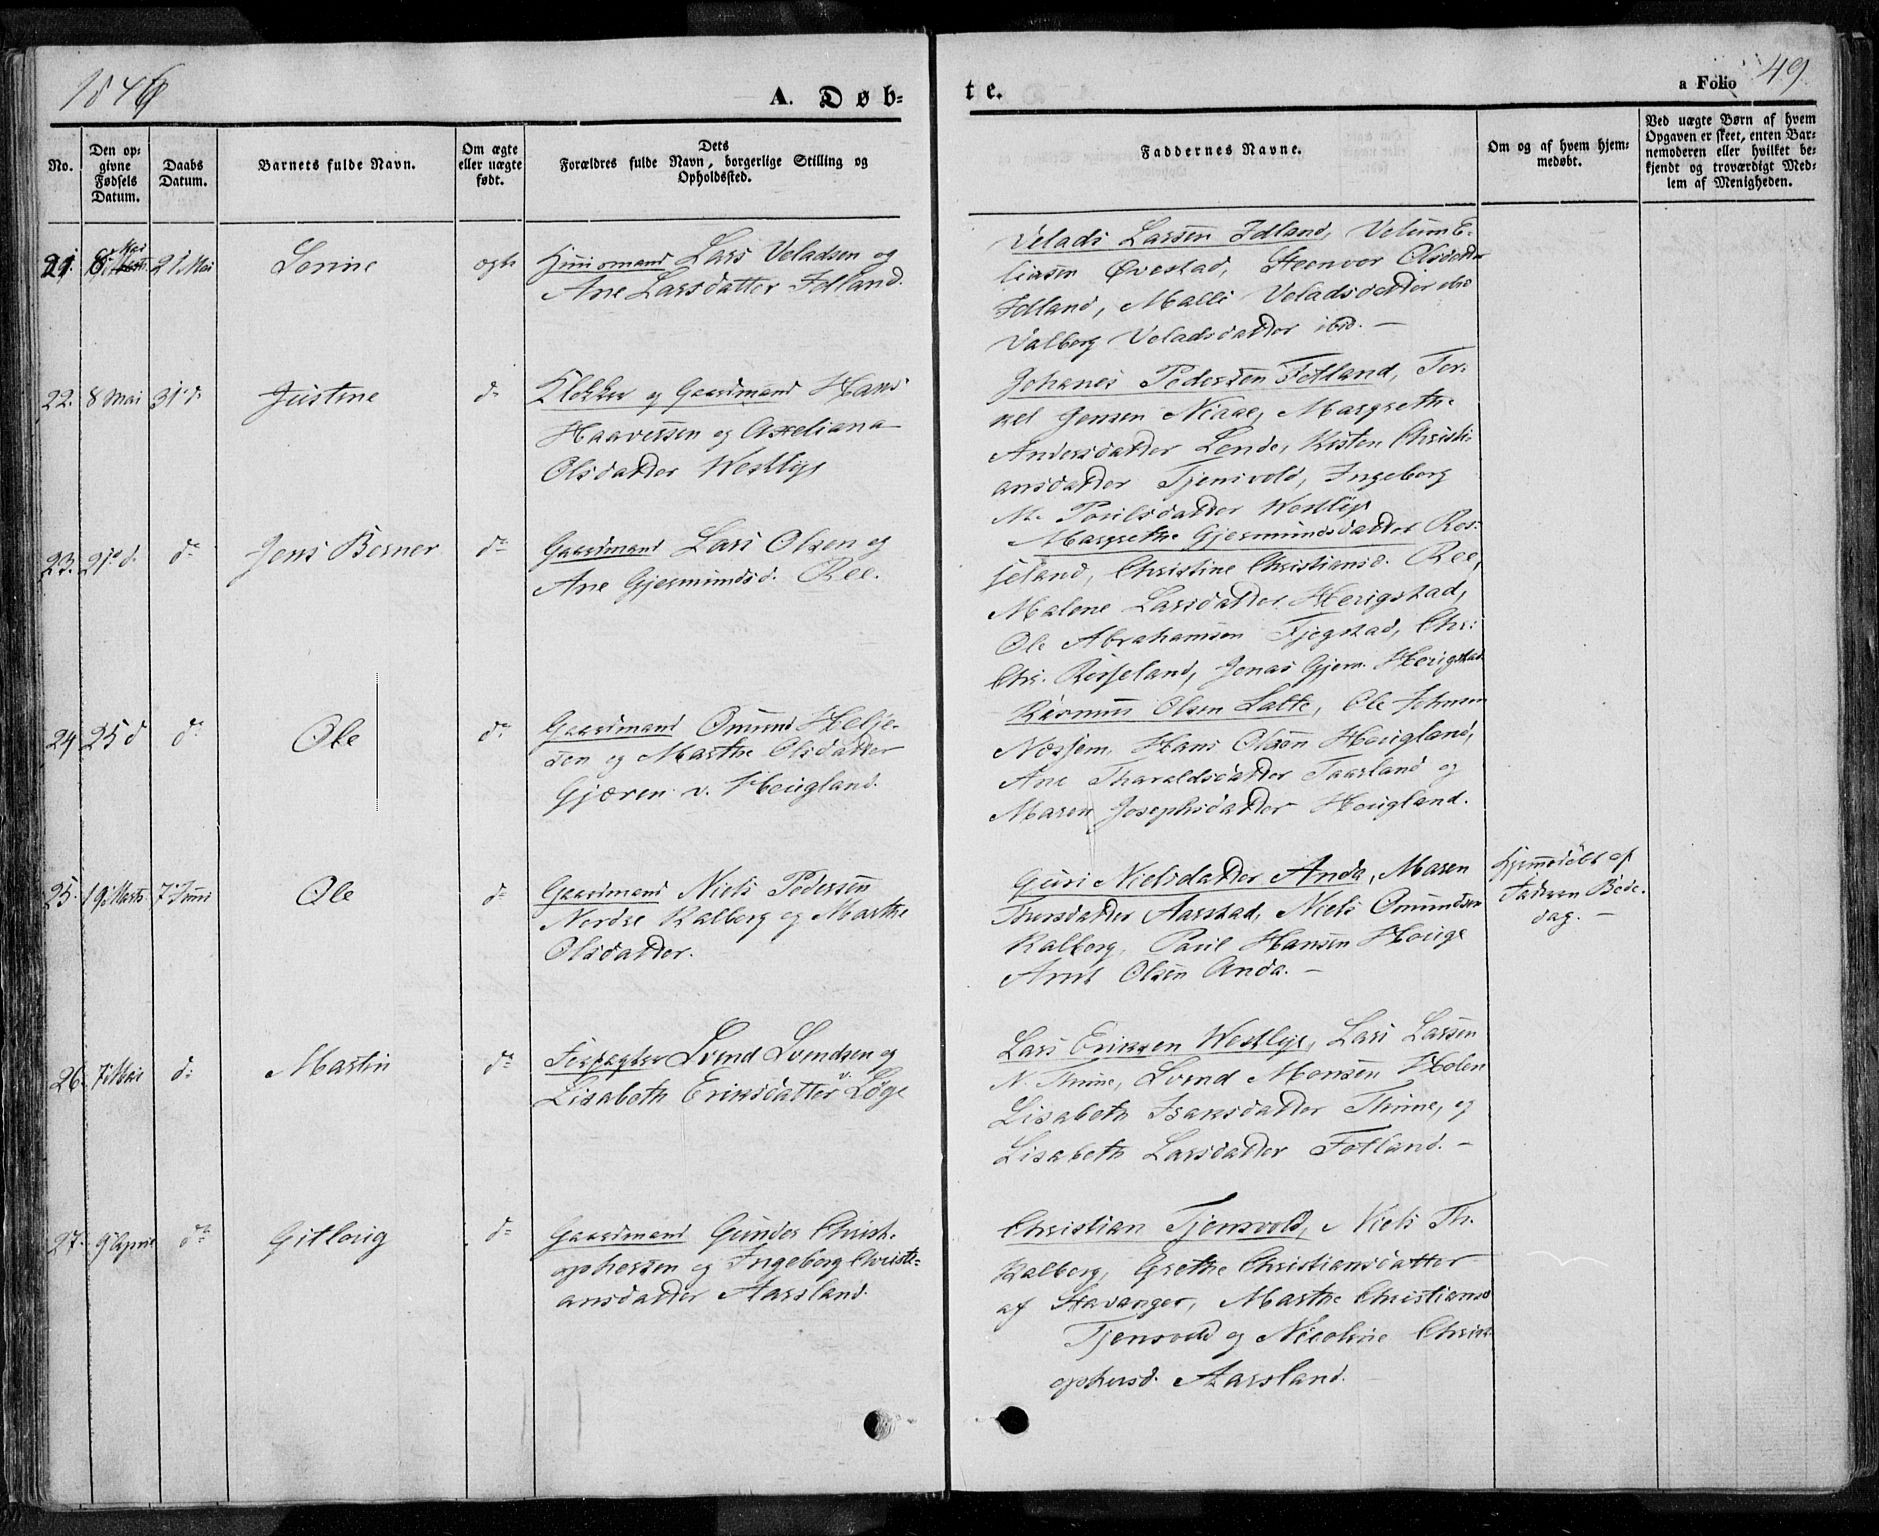 1846
A. Døb=
te.
a Folio 49.
No.
Den op=
givne
Fødsels
Datum.
Daabs
Datum.
Barnets fulde Navn.
Om ægte
eller uægte
født.
Dets
Forældres fulde Navn, borgerlige Stilling og
Opholdssted.
Faddernes Navne.
Om og af hvem hjem=
medøbt.
Ved uægte Børn af hvem
Opgaven er skeet, enten Bar=
nemoderen eller hvilket be=
kjendt og troværdigt Med=
lem af Menigheden.
21. 8 Mai 21 Mai Sorine ægte Huusmand Lars Veladsen og
Ane Larsdatter Idland.
Velads Larsen Idland, Velum E-
liasen Øvestad, Steenvor Olsdatter
Idland, Malli Veladsdatter ibid
Valborg Veladsdatter ibid. —
22. 8 Mai 31 d. Justine d. Klokker og Gaardmand Hans
Haaversen og Axeliana
Olsdatter Westlye
Johanes Pedersen Fotland, Tor-
kel Jensen Niaae, Margrethe
Andersdatter Lende, Kisten Christi-
ansdatter Tjensvold, Ingeborg
M. Poulsdatter Westlye
23. 21 d. d. Jens Berner d. Gaardmand Lars Olsen og
Ane Gjermundsd. Ree.
Margrethe Gjermundsdatter Ros-
seland, Christine Christiansd. Ree,
Malene Larsdatter Herigstad,
Ole Abrahamsen Fjogstad, Chr:
Chr. Rosseland, Jonas Gjerm. Herigstad
24 25 d d. Ole d. Gaardmand Omund Helje-
sen og Marthe Olsdatter
Gjæren v. Hougland.
Rasmus Olsen Latte, Ole Johnsen
Næsjem, Hans Olsen Hougland,
Ane Tharaldsdatter Taarland og
Maren Josephsdatter Hougland.
25. 19 Marts 7 Juni Ole d. Gaardmand Niels Pedersen
Nordre Kalberg og Marthe
Olsdatter.
Guri Nielsdatter Anda, Maren
Thorsdatter Aarstad, Niels Omundsen
Kalberg, Poul Hansen Houge
Arne Olsen Anda. —
hjemmedøbt af
Faderen Bede-
dag. —
26. 7 Mai d. Martin d. Forpagter Svend Svendsen og
Lisabeth Eriksdatter v. Løge
Lars Eriksen Westlye, Lars Larsen
N. Thime, Svend Monsen Holen
Lisabeth Isaksdatter Thime, og
Lisabeth Larsdatter Fotland. —
27. 9 d. Gitloug d. Gaardmand Gunder Christ-
ophersen og Ingeborg Christi=
ansdatter Aarsland.
Christian Tjensvold, Niels Th.
Kalberg, Grethe Christiansdatter
af Stavanger, Marthe Christiansd
Tjensvold og Nicoline Christ-
ophersd. Aarsland.